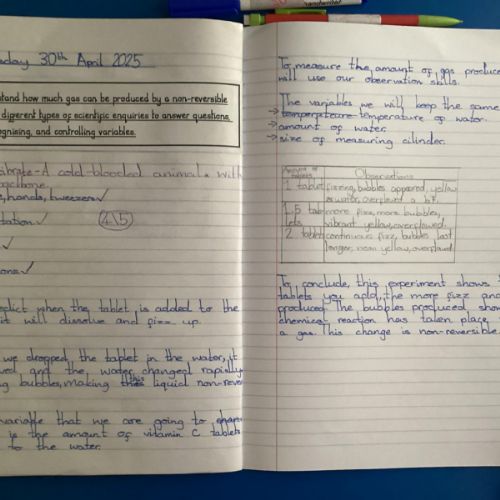 day 30th April 2025
stand how much gas can be produced by a non-reversible
different types of scientific enquiries to answer questions,
gnising, and controlling variables.
ibrate-A cold-blooded animals with
backbone.
e, hands, tweezers✓
tation ✓ 4/5
✓
ons ✓
edict when the tablet is added to the
it will dissolve and fizz up.
we dropped the tablet in the water, it
ved and the water changed rapidly
ng bubbles, making this liquid non-rever
variable that we are going to change
is the amount of vitamin C tablets
to the water.
To measure the amount of gas produce
will use our observation skills.
The variables we will keep the same
→ temperature temperature of water.
→ amount of water.
→ size of measuring cilinder.
Amount of tablets Observations
1 tablet fizzing, bubbles appeared, yellow
water, overflowed a bit.
1.5 tab more fizz, more bubbles,
lets vibrant yellow, overflowed.
2 tablets continuous fizz, bubbles last
longer, neon yellow, overflowed
To conclude, this experiment shows t
tablets you add, the more fizz and
produced. The bubbles produced show
chemical reaction has taken place
a gas. This change is non-reversible